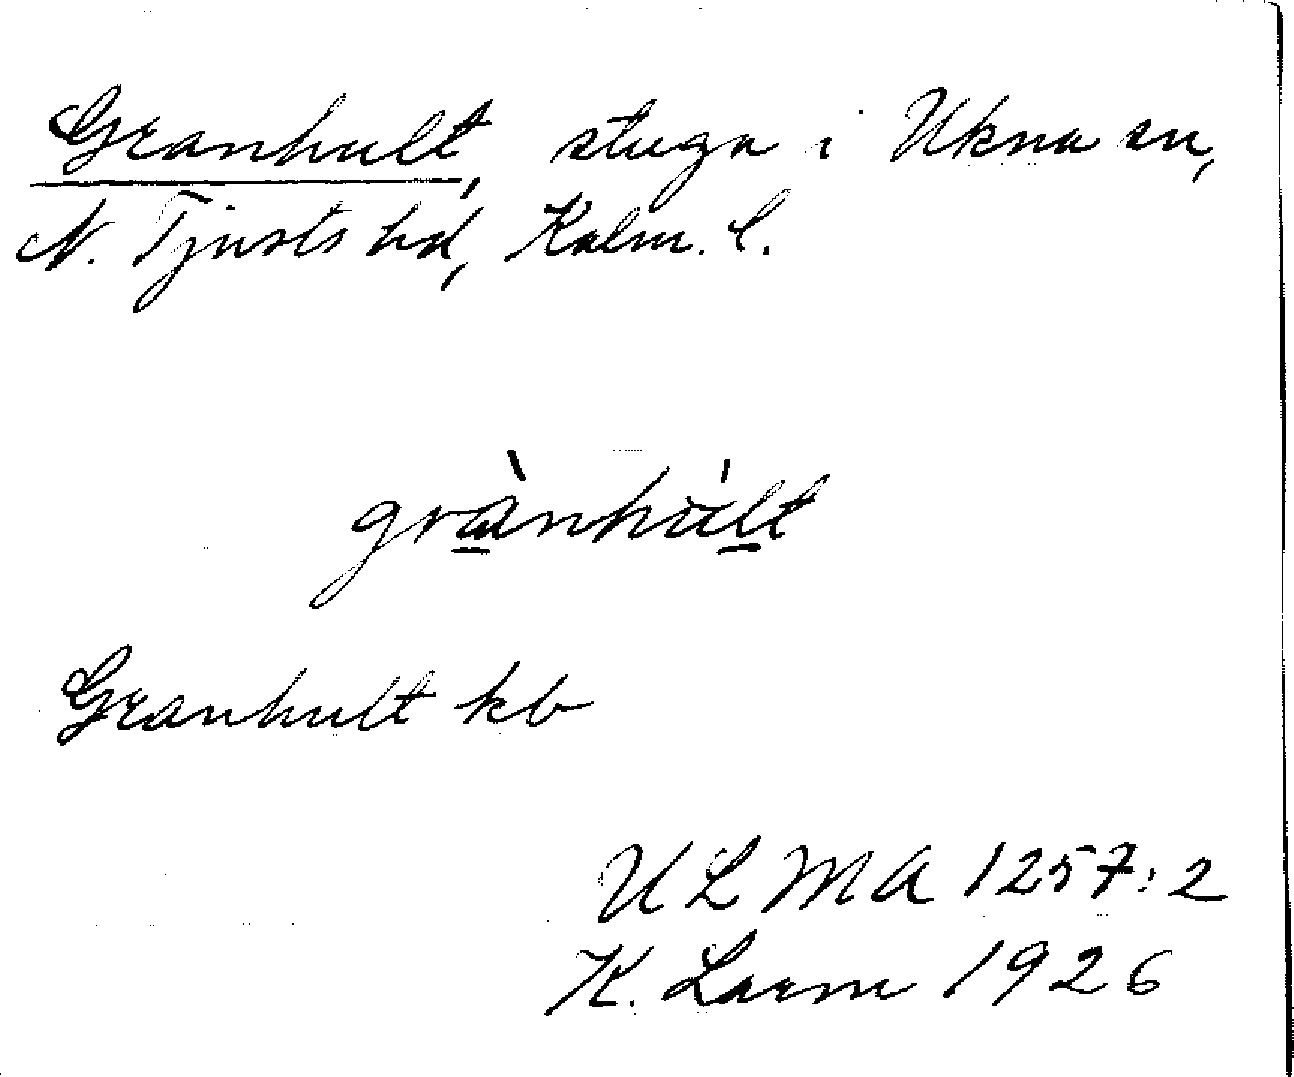 Granhult, stuga i Ukna sn,
N. Tjusts hd, Kalm. l.
grànhúlt
Granhult kb
ULMA 1257:2
K. Larm 1926